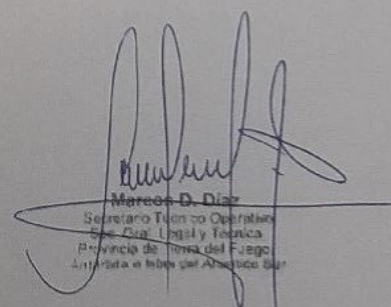 Marcos D. Diaz
Secretario Tecnico Operativo
Sec. Gral. Legal y Técnica
Provincia de Tierra del Fuego
Antártida e Islas del Atlántico Sur